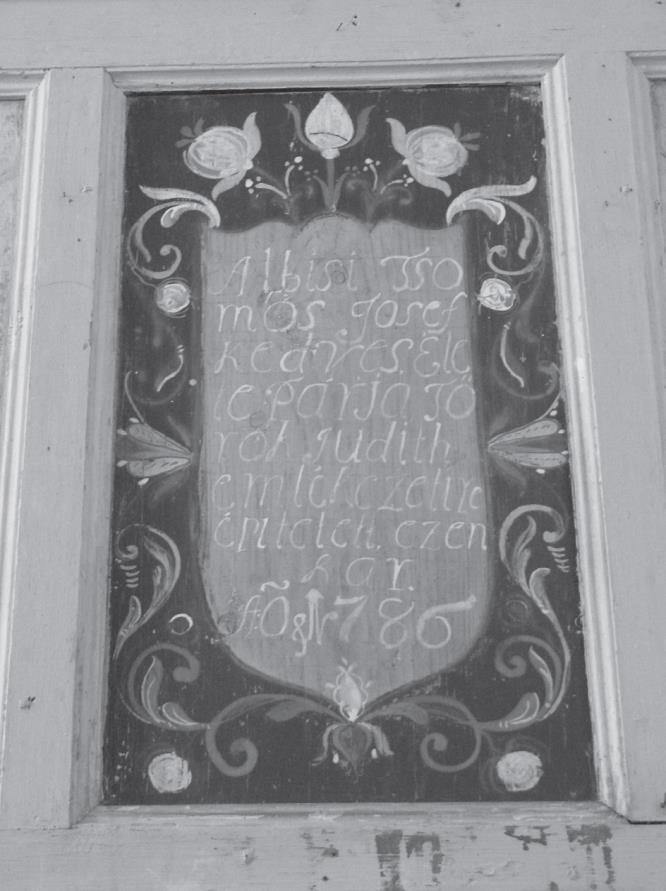 Albisi Tso
mos Josef
kedves Ele
te Párja Tö
rök Judith
emlékezetire
épitetett ezen
kar.
AÕ 1786